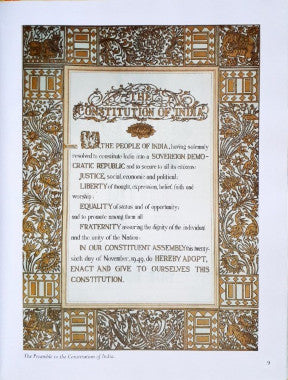 THE
CONSTITUTION OF INDIA
WE, THE PEOPLE OF INDIA, having solemnly
resolved to constitute India into a SOVEREIGN DEMO-
CRATIC REPUBLIC and to secure to all its citizens:
JUSTICE, social, economic and political;
LIBERTY of thought, expression, belief, faith and
worship;
EQUALITY of status and of opportunity;
and to promote among them all
FRATERNITY assuring the dignity of the individual
and the unity of the Nation;
IN OUR CONSTITUENT ASSEMBLY this twenty-
sixth day of November, 1949, do HEREBY ADOPT,
ENACT AND GIVE TO OURSELVES THIS
CONSTITUTION.
The Preamble to the Constitution of India.
9